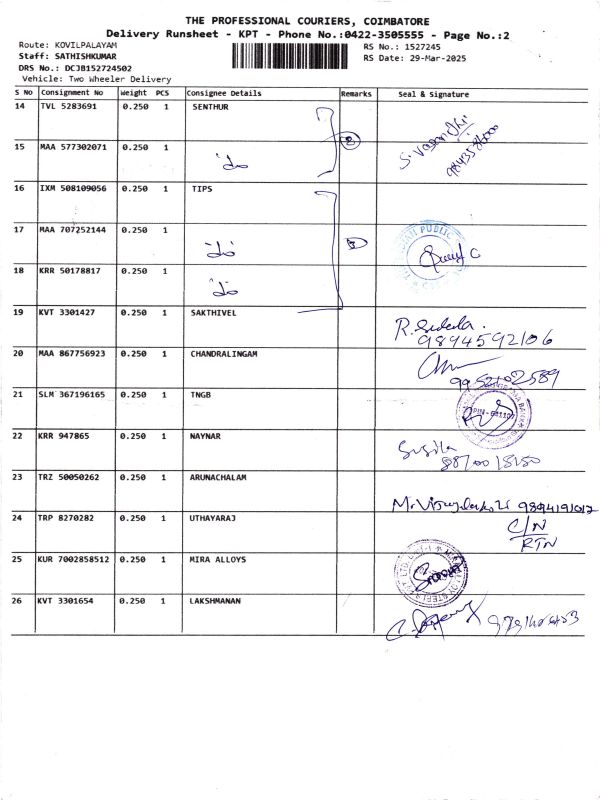 THE PROFESSIONAL COURIERS, COIMBATORE
Delivery Runsheet - KPT - Phone No.:0422-3505555 - Page No.:2
Route: KOVILPALAYAM
RS No.: 1527245
Staff: SATHISHKUMAR
RS Date: 29-Mar-2025
DRS No.: DCJB152724502
Vehicle: Two Wheeler Delivery
S No Consignment No Weight PCS Consignee Details Remarks Seal & Signature
14 TVL 5283691 0.250 1 SENTHUR
15 MAA 577302071 0.250 1
16 IXM 508109056 0.250 1 TIPS
17 MAA 707252144 0.250 1
18 KRR 50178817 0.250 1
19 KVT 3301427 0.250 1 SAKTHIVEL
9894592106
20 MAA 867756923 0.250 1 CHANDRALINGAM
9952102589
21 SLM 367196165 0.250 1 TNGB
22 KRR 947865 0.250 1 NAYNAR
Susila
23 TRZ 50050262 0.250 1 ARUNACHALAM
24 TRP 8270282 0.250 1 UTHAYARAJ
C/N
RTN
25 KUR 7002858512 0.250 1 MIRA ALLOYS
26 KVT 3301654 0.250 1 LAKSHMANAN